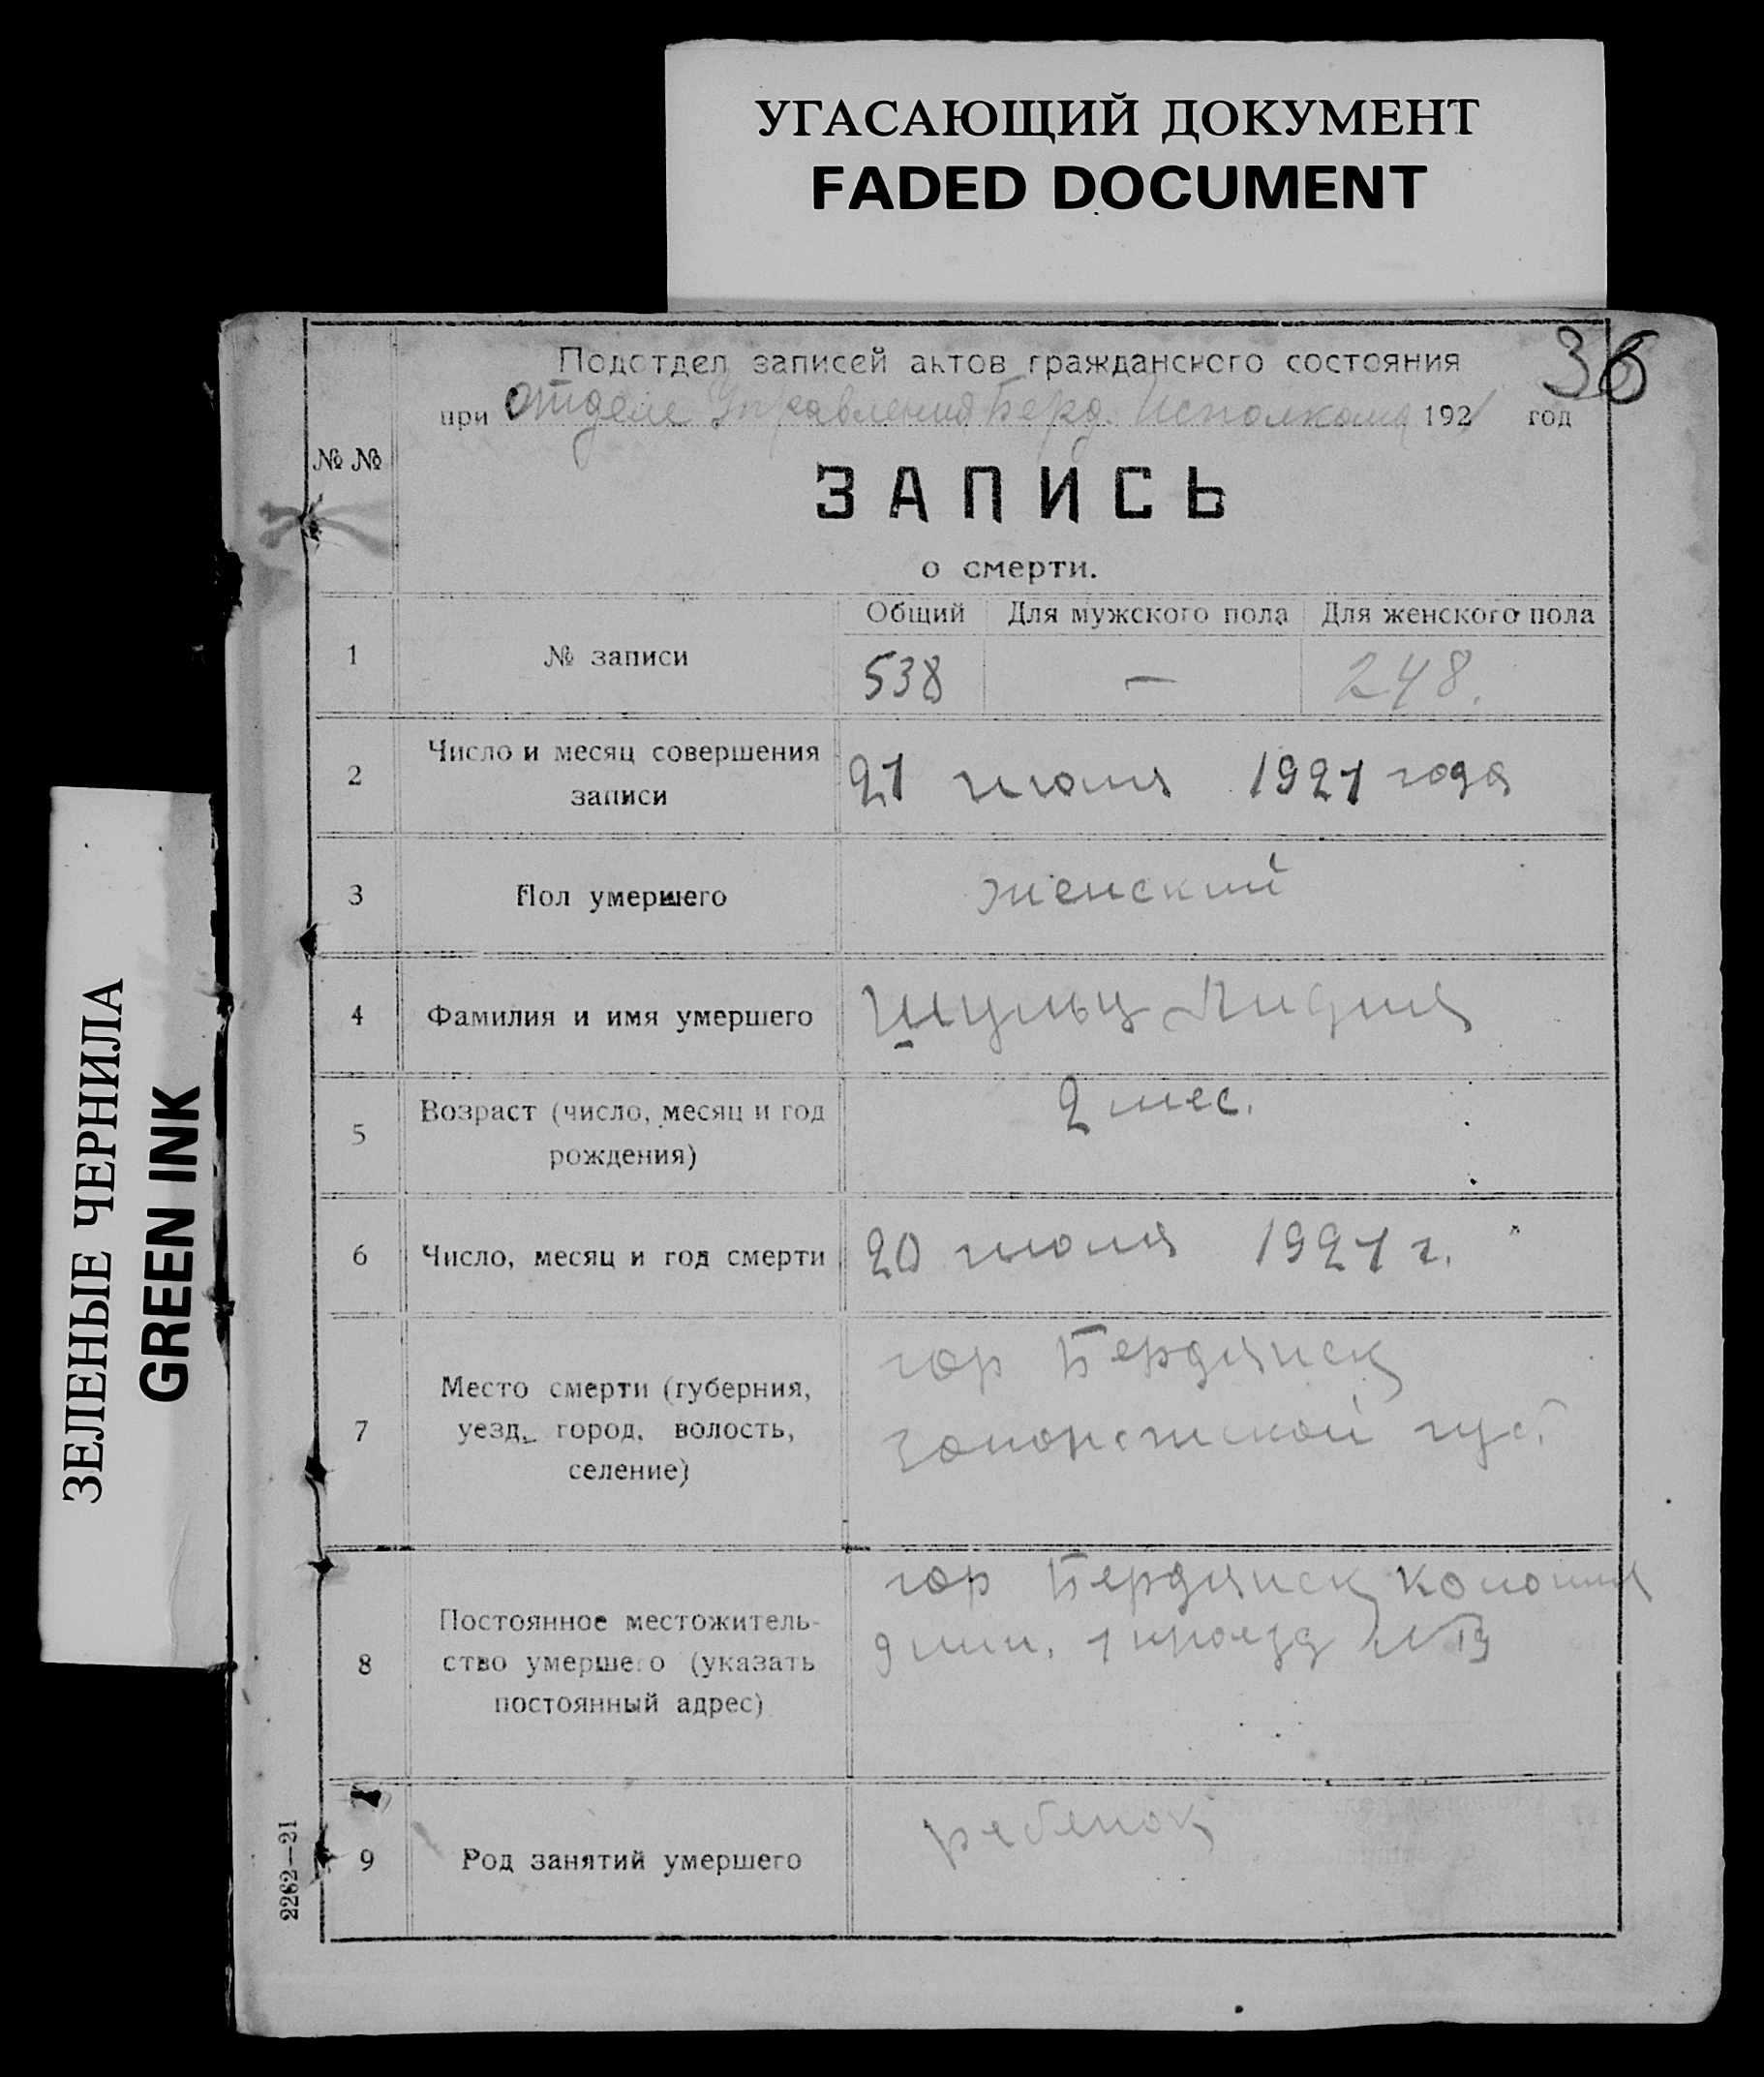 УГАСАЮЩИЙ ДОКУМЕНТ
FADED DOCUMENT
ЗЕЛЕНЫЕ ЧЕРНИЛА
GREEN INK
36
Подотдел записей актов гражданского состояния
при Отделе Управления Берд. Исполкома 1921 год
№ №
ЗАПИСЬ
о смерти.
Общий Для мужского пола Для женского пола
1 № записи 538 — 248.
2 Число и месяц совершения
записи
21 июля 1921 года
3 Пол умершего женский
4 Фамилия и имя умершего Шульц Лидия
5 Возраст (число, месяц и год
рождения)
2 мес.
6 Число, месяц и год смерти 20 июля 1921 г.
7 Место смерти (губерния,
уезд, город, волость,
селение)
гор Бердянск
губ.
8 Постоянное местожитель-
ство умершего (указать
постоянный адрес)
гор Бердянск колония
9 лин, 1 проезд №
9 Род занятий умершего ребенок
2262—21